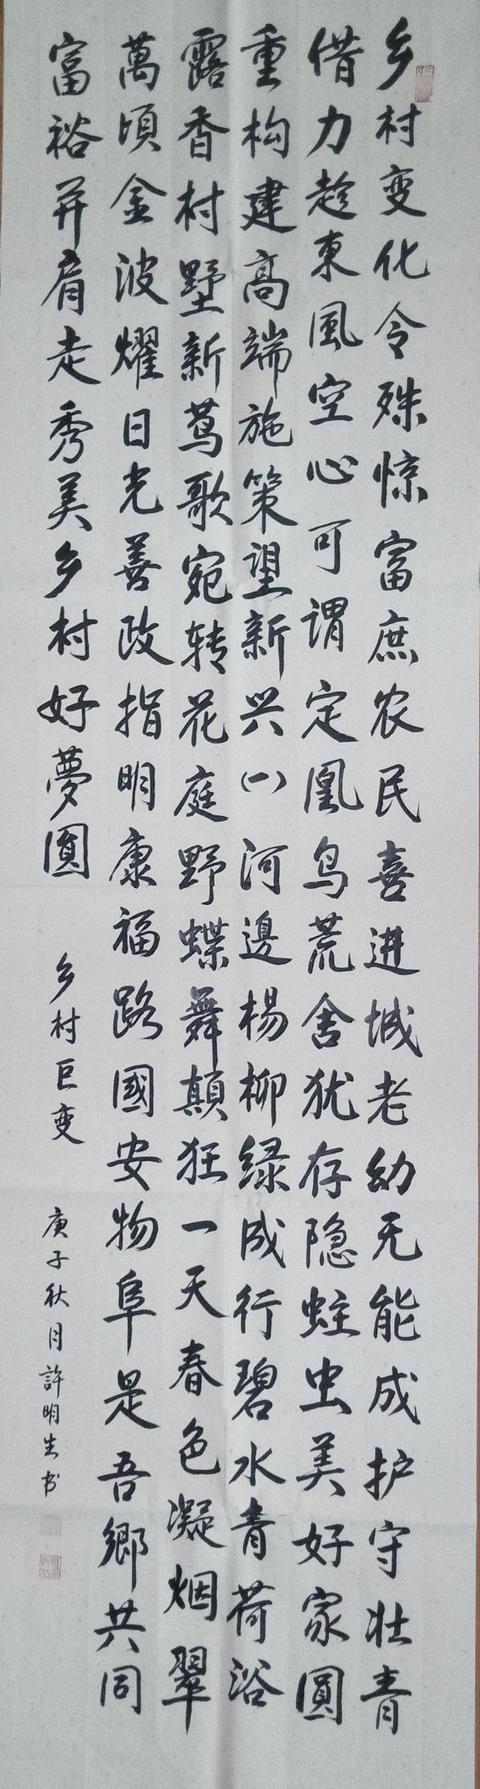 乡村变化令殊惊富庶农民喜进城老幼无能成护守壮青
借力趁東風空心可谓定凰鸟荒舍犹存隐蛀虫美好家圆
重构建高端施策望新兴八河邊杨柳绿成行碧水青荷浴
露香村墅新莺歌宛转花庭野蝶舞颠狂一天春色凝烟翠
萬頃金波耀日光善政指明康福路國安物阜是吾鄉共同
富裕并肩走秀美乡村好夢圓
乡村巨变
庚子秋月許明生书